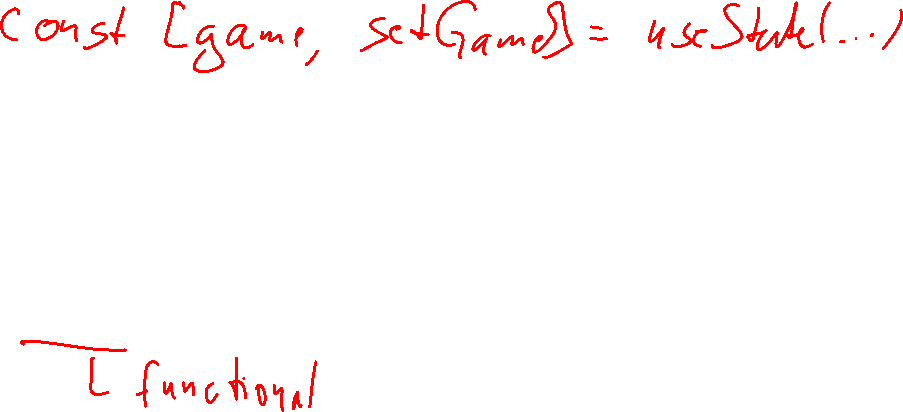 const [game, setGame] = useState(...)
[ functional